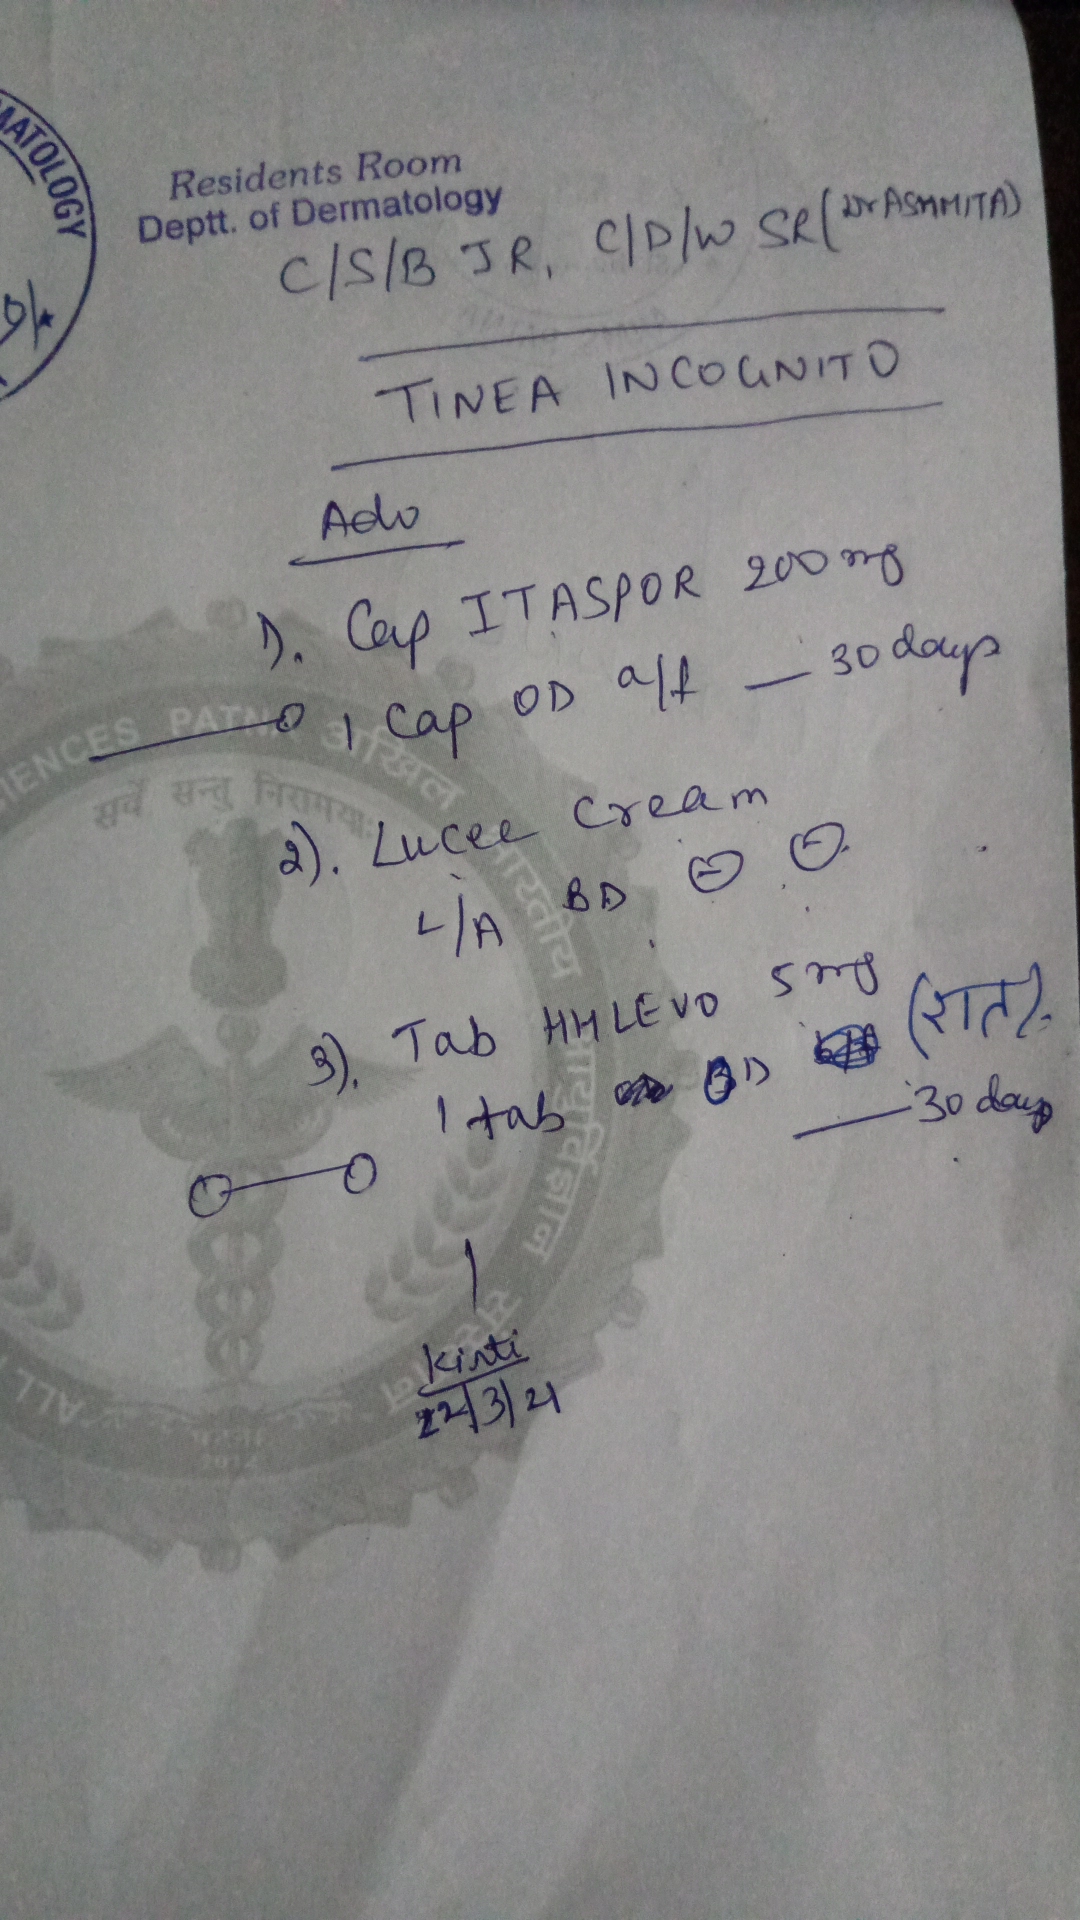 MATOLOGY
Residents Room
Deptt. of Dermatology
C/S/B JR, C/D/W SR (Dr ASMMITA)
TINEA INCOGNITO
Adv
1). Cap ITASPOR 200 mg
1 Cap OD a/f — 30 days
2). Lucee Cream
L/A BD
3). Tab HHLEVO 5 mg
1 tab BD (रात)
— 30 days
Kirti
22/3/21
IENCES PATNA अखिल
सर्वे सन्तु निरामयाः
भारतीय
आयुर्विज्ञान
ALL
2012